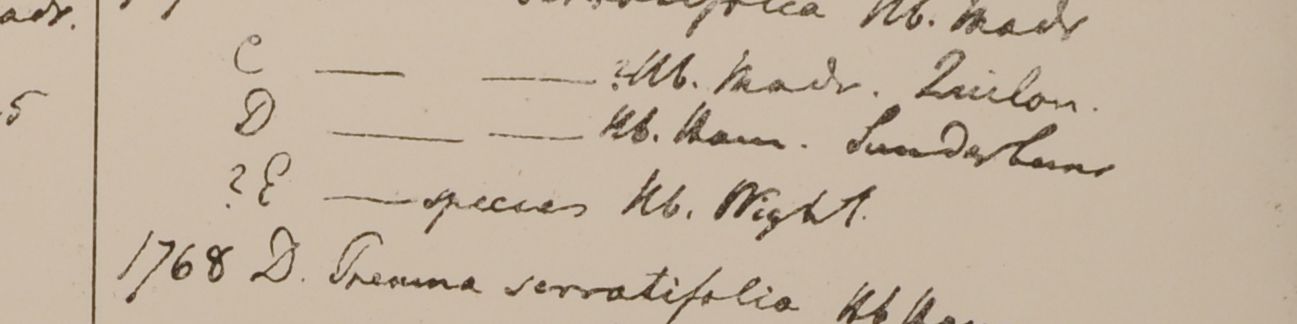 adr. serratifolia Hb. Madr
C — — ?Hb. Madr. Quilon.
5 D — — Hb. Ham. Sunderbuns
?E — species Hb. Wight.
1768 D. Premna serratifolia Hb Ham